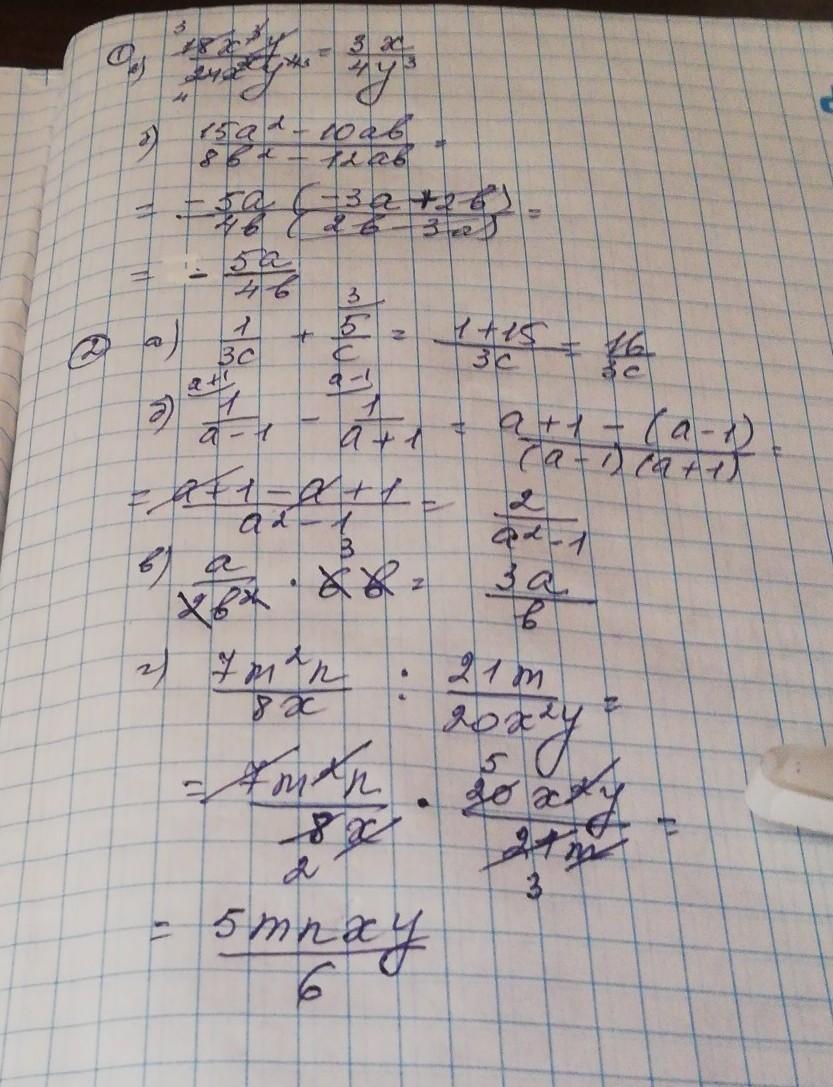 ① а) 18x³y / 24x²y⁴ = 3x / 4y³
б) 15a² - 10ab / 8b² - 12ab =
= -5a (-3a + 2b) / 4b (2b - 3a) =
= - 5a / 4b
② а) 1 / 3c + 5 / c = 1 + 15 / 3c = 16 / 3c
б) 1 / a-1 - 1 / a+1 = a+1 - (a-1) / (a-1)(a+1) =
= a+1 - a + 1 / a² - 1 = 2 / a² - 1
в) a / 2b² · 6b = 3a / b
г) 7m²n / 8x : 21m / 20x²y =
= 7m²n / 8x · 20x²y / 21m =
= 5mnxy / 6